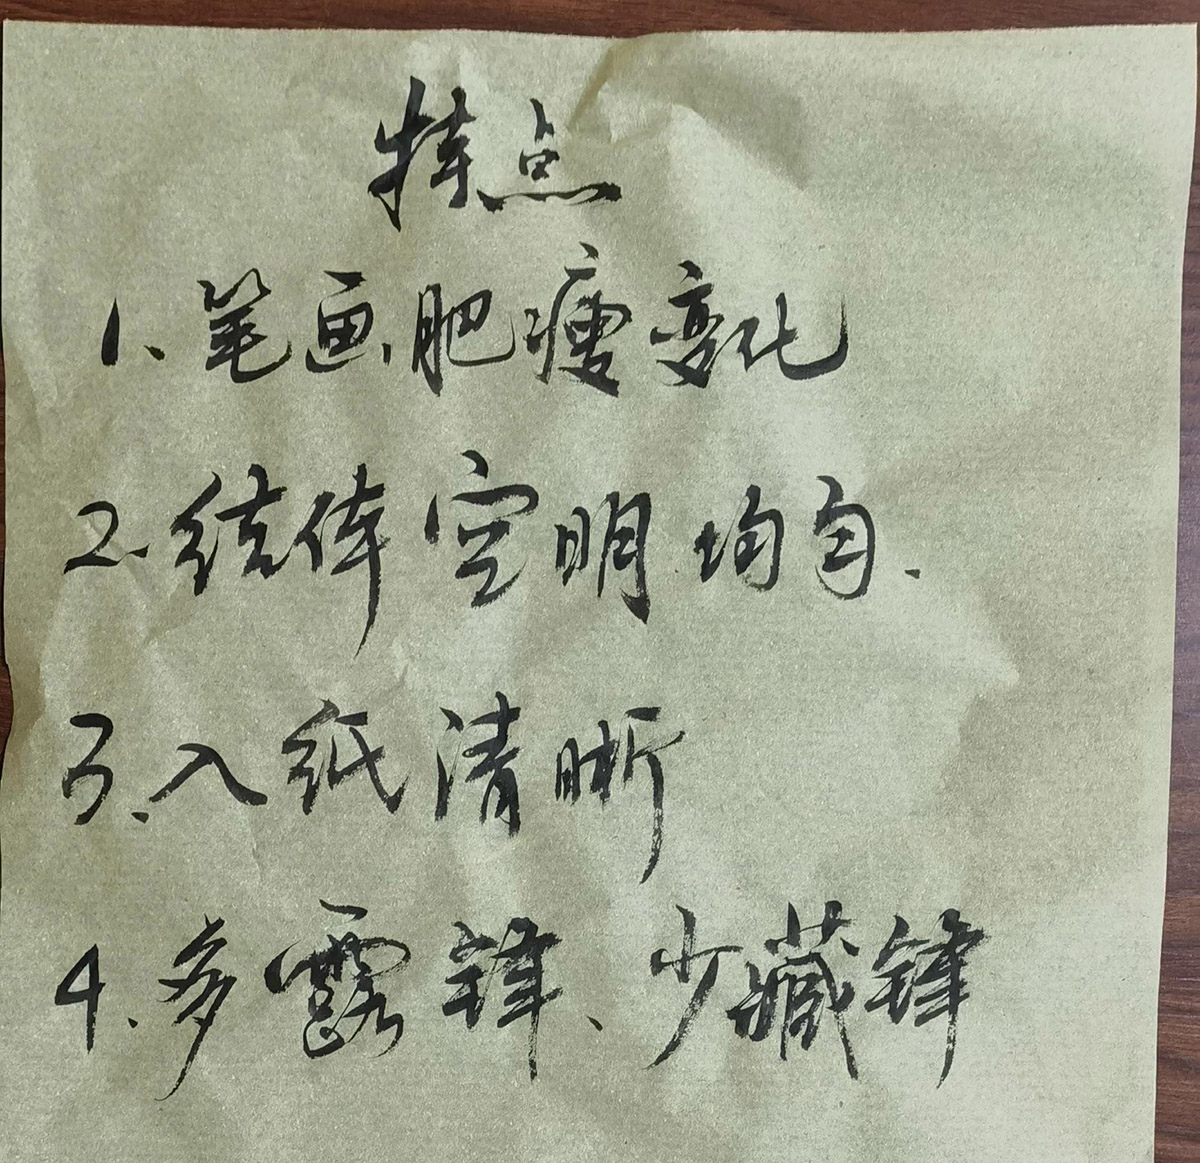 特点
1、笔画肥瘦变化
2.结体空明均匀.
3、入纸清晰
4、多露锋、少藏锋